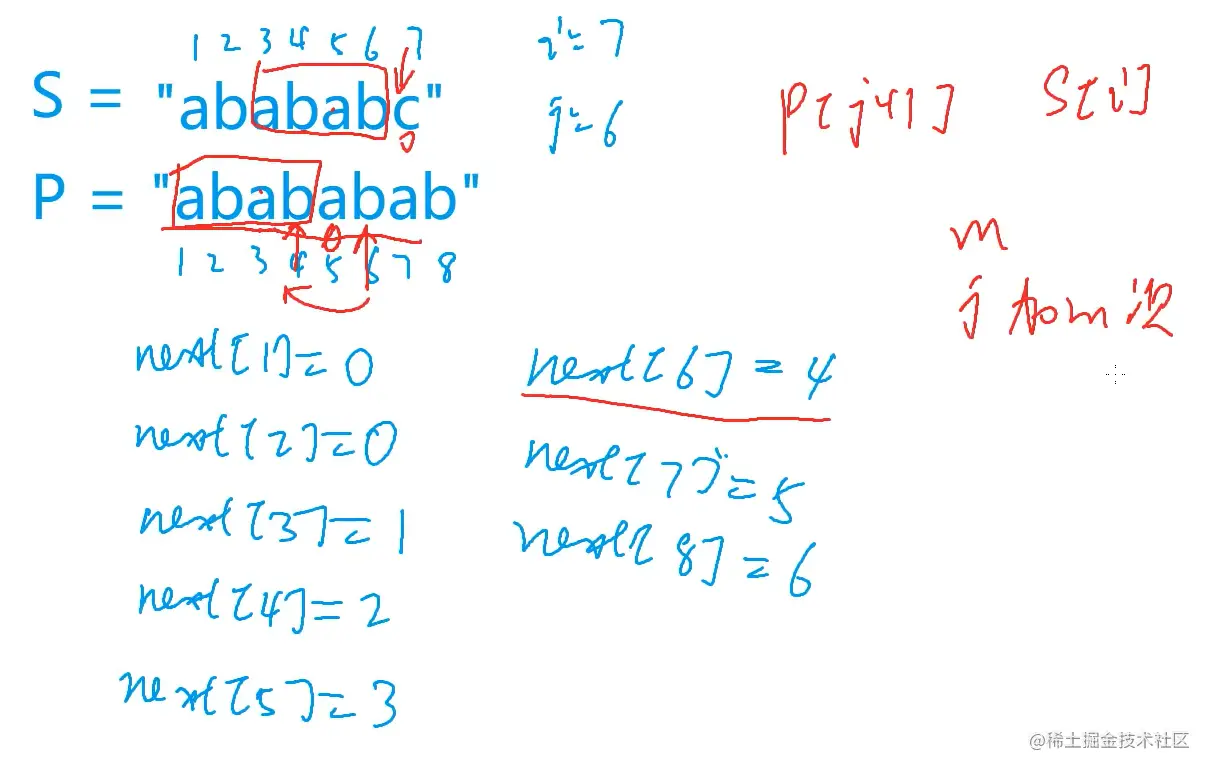 1 2 3 4 5 6 7
i=7
S = "abababc"
j=6
P[j+1] S[i]
P = "abababab"
1 2 3 4 5 6 7 8
m
j 加m次
next[1]=0
next[6]=4
next[2]=0
next[7]=5
next[3]=1
next[8]=6
next[4]=2
next[5]=3
@稀土掘金技术社区